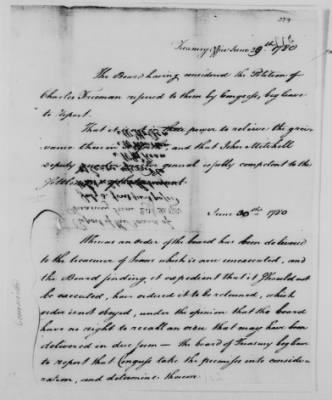 Treasury Office June 29th 1780
The Board having considered the Petition of
Charles Freeman refered to them by Congress, beg leave
to report.
That it power to relieve the grie-
vance therein and that John Mitchell
Deputy general is fully competent to the
June 30th 1780
Whereas an order of the board has been delivered
to the treasurer of Loans which is unexecuted, and
the Board finding it expedient that it should not
be executed, have ordered it to be returned, which
order is not obeyed, under the opinion that the board
have no right to recall an order that may have been
delivered in due form — the board of Treasury beg leave
to report that Congress take the premisses into conside-
ration, and determine thereon